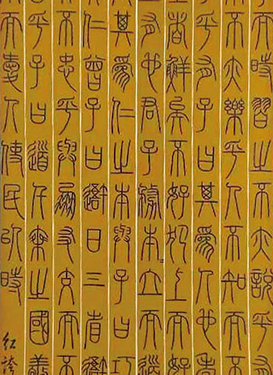 而時習之不亦說乎有朋
來不亦樂乎人不知而不
乎有子曰其為人也孝弟
上者鮮矣不好犯上而好
之有也君子務本本立而
者其為仁之本與子曰巧
矣仁曾子曰吾日三省吾
而不忠乎與朋友交而不
習乎子曰道千乘之國敬
而愛人使民以時
紅